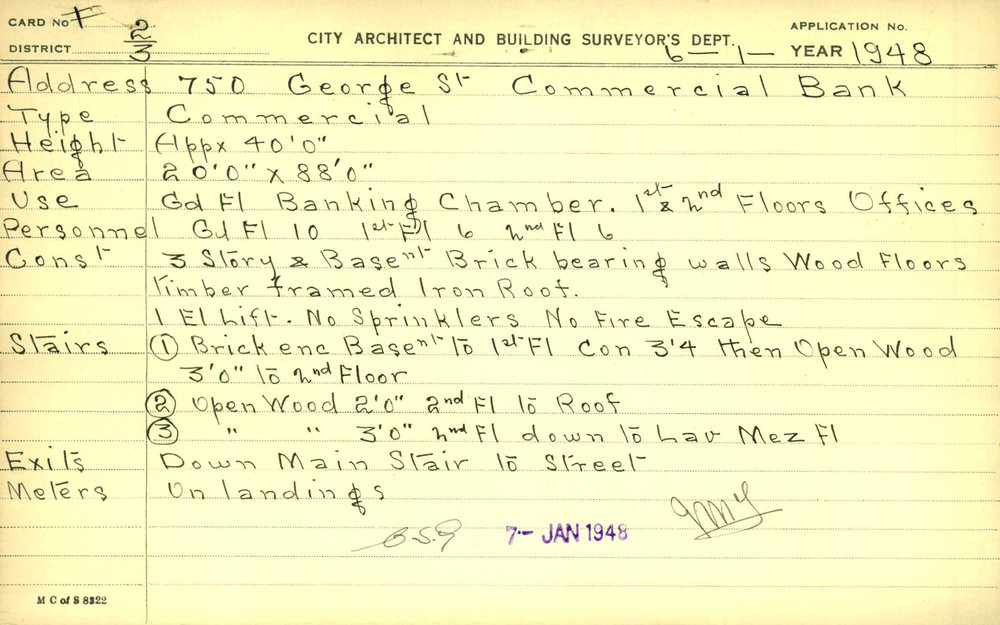 CARD No F 2/3 APPLICATION No.
DISTRICT CITY ARCHITECT AND BUILDING SURVEYOR'S DEPT. 6 — 1 — YEAR 1948
Address 750 George St Commercial Bank
Type Commercial
Height Appx 40'0"
Area 20'0" x 88'0"
Use Gd Fl Banking Chamber. 1st & 2nd Floors Offices
Personnel Gd Fl 10 1st Fl 6 2nd Fl 6
Const 3 Story & Basent Brick bearing walls Wood Floors
Timber framed Iron Roof.
1 El Lift. No Sprinklers No Fire Escape
Stairs ① Brick enc Basent to 1st Fl Con 3'4 then Open Wood
3'0" to 2nd Floor
② Open Wood 2'0" 2nd Fl to Roof
③ " " 3'0" 2nd Fl down to Lav Mez Fl
Exits Down Main Stair to Street
Meters On landings
7 - JAN 1948
M C of S 8322